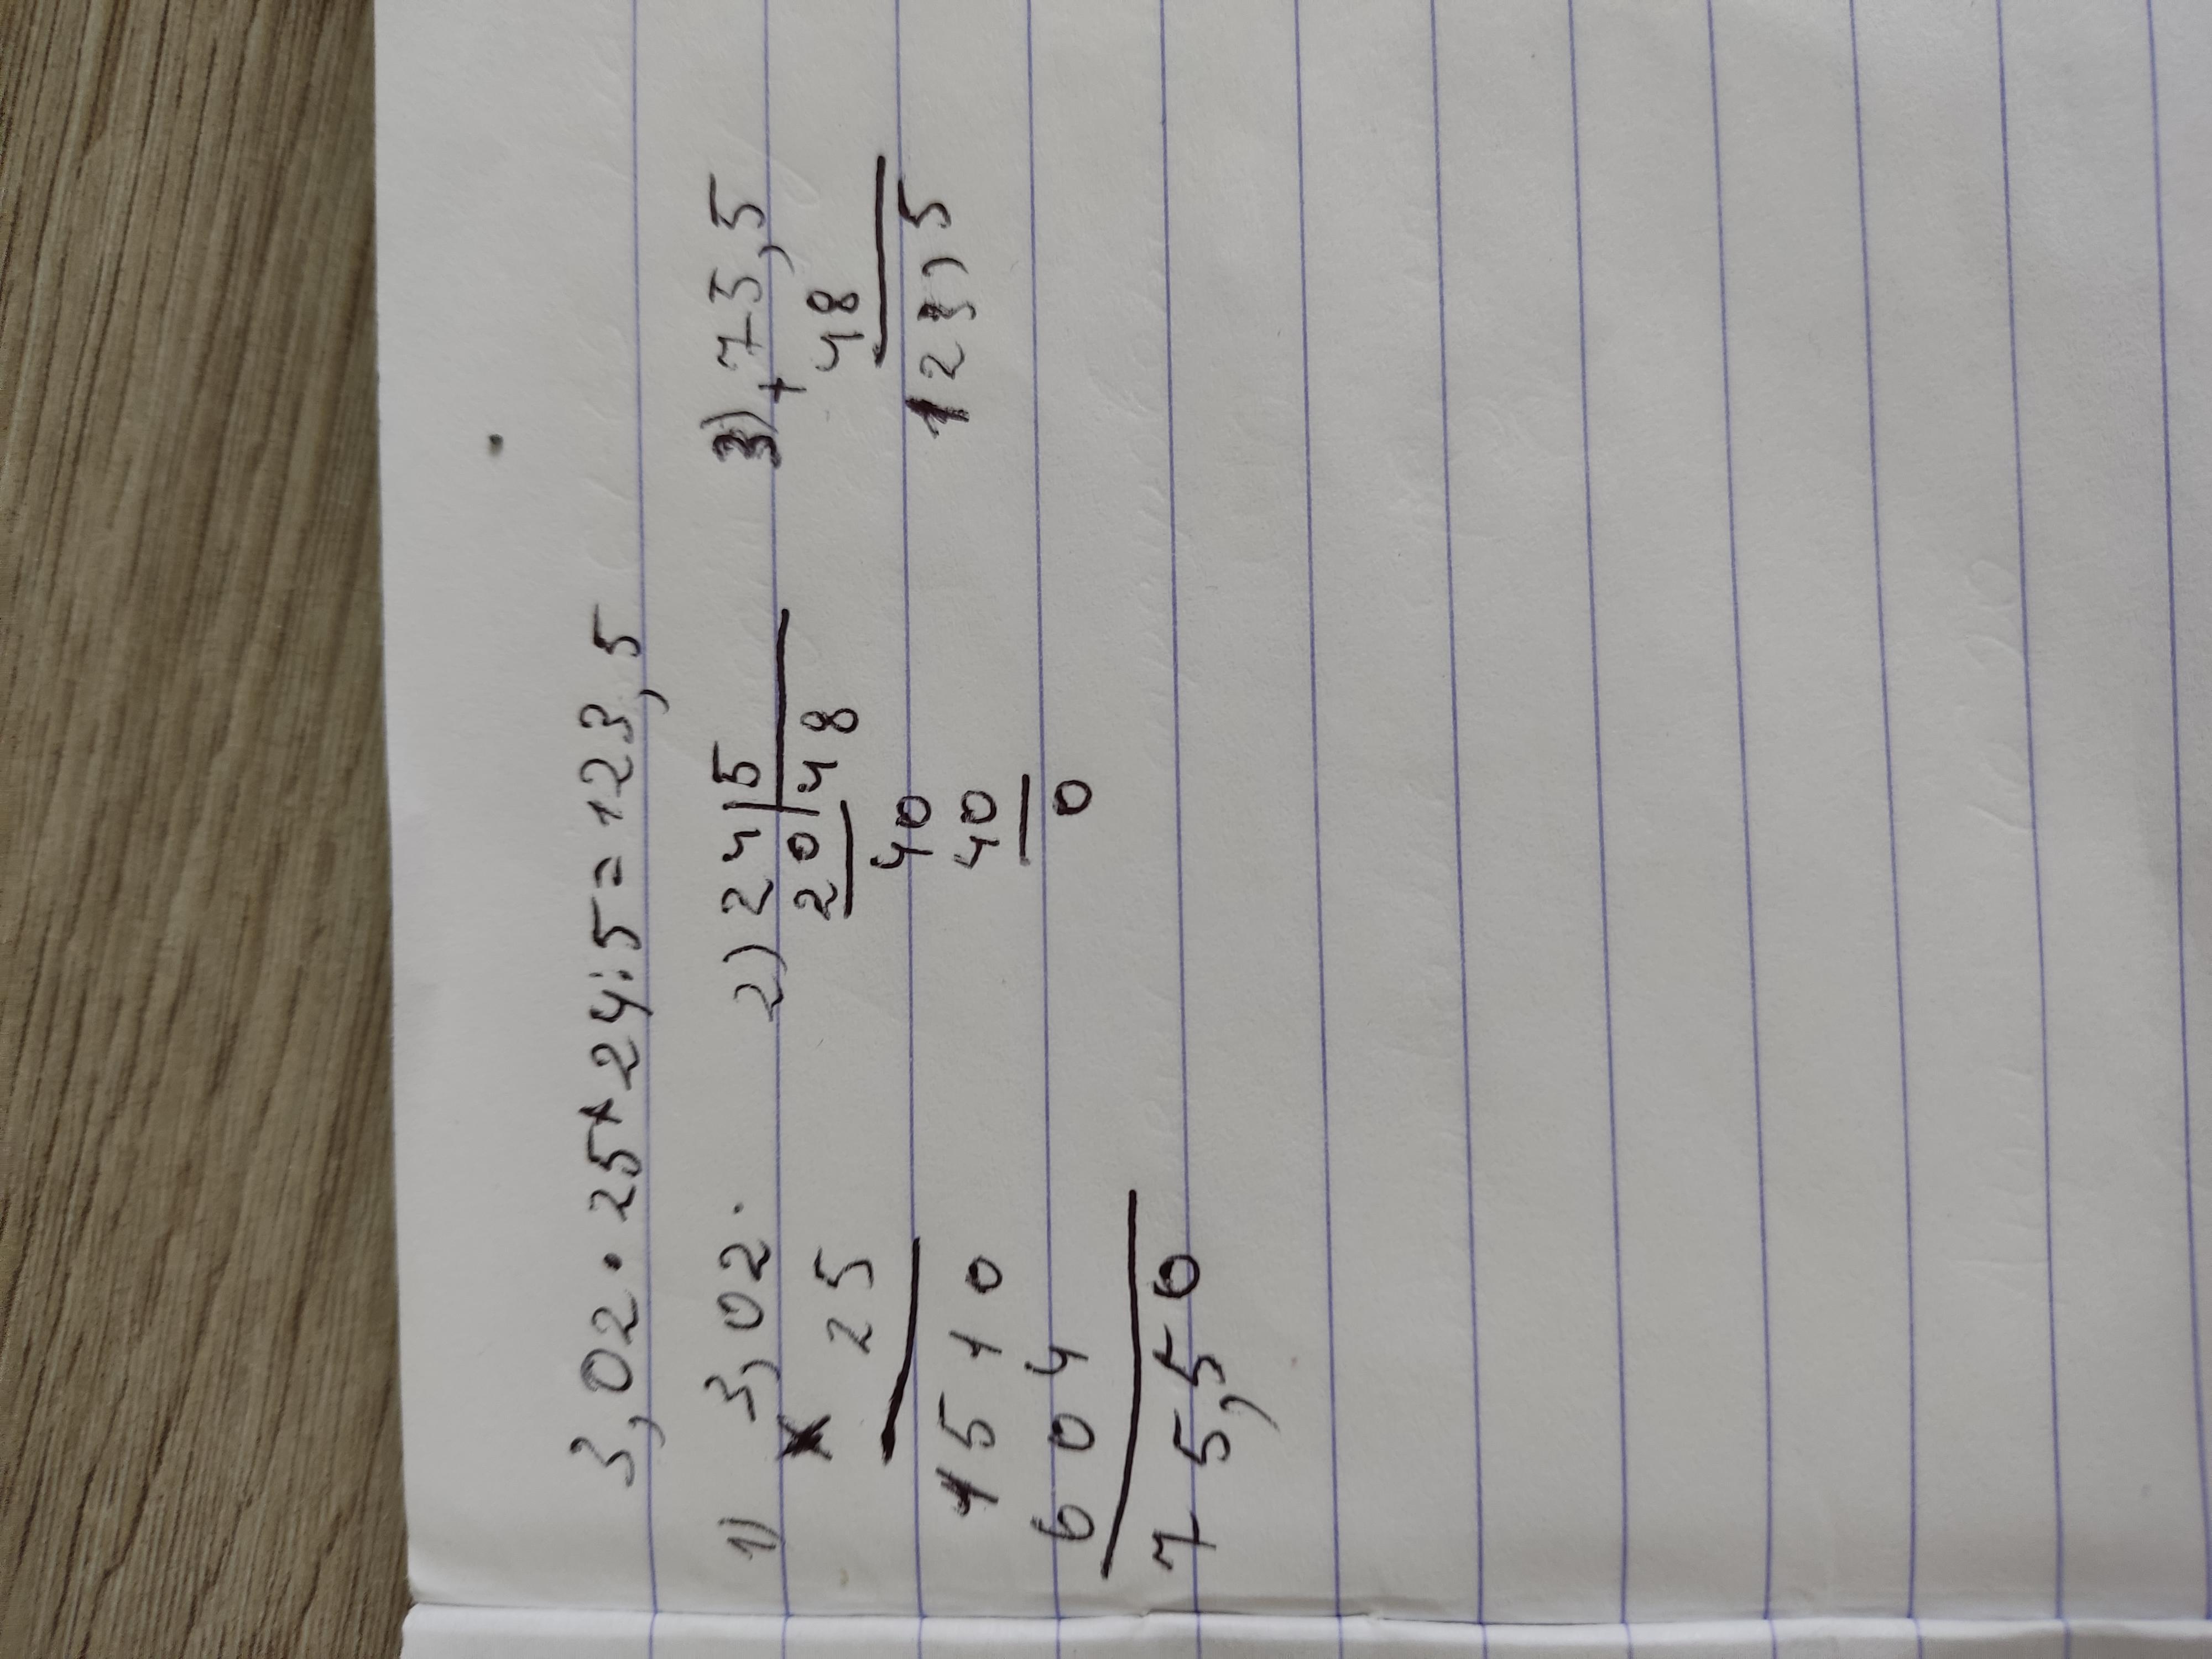 3,02 · 25 + 24 : 5 = 123,5
1) 3,02 · 2) 24 | 5 3) + 75,5
× 25 20 | 48 48
1510 40 123,5
604 40
75,50 0